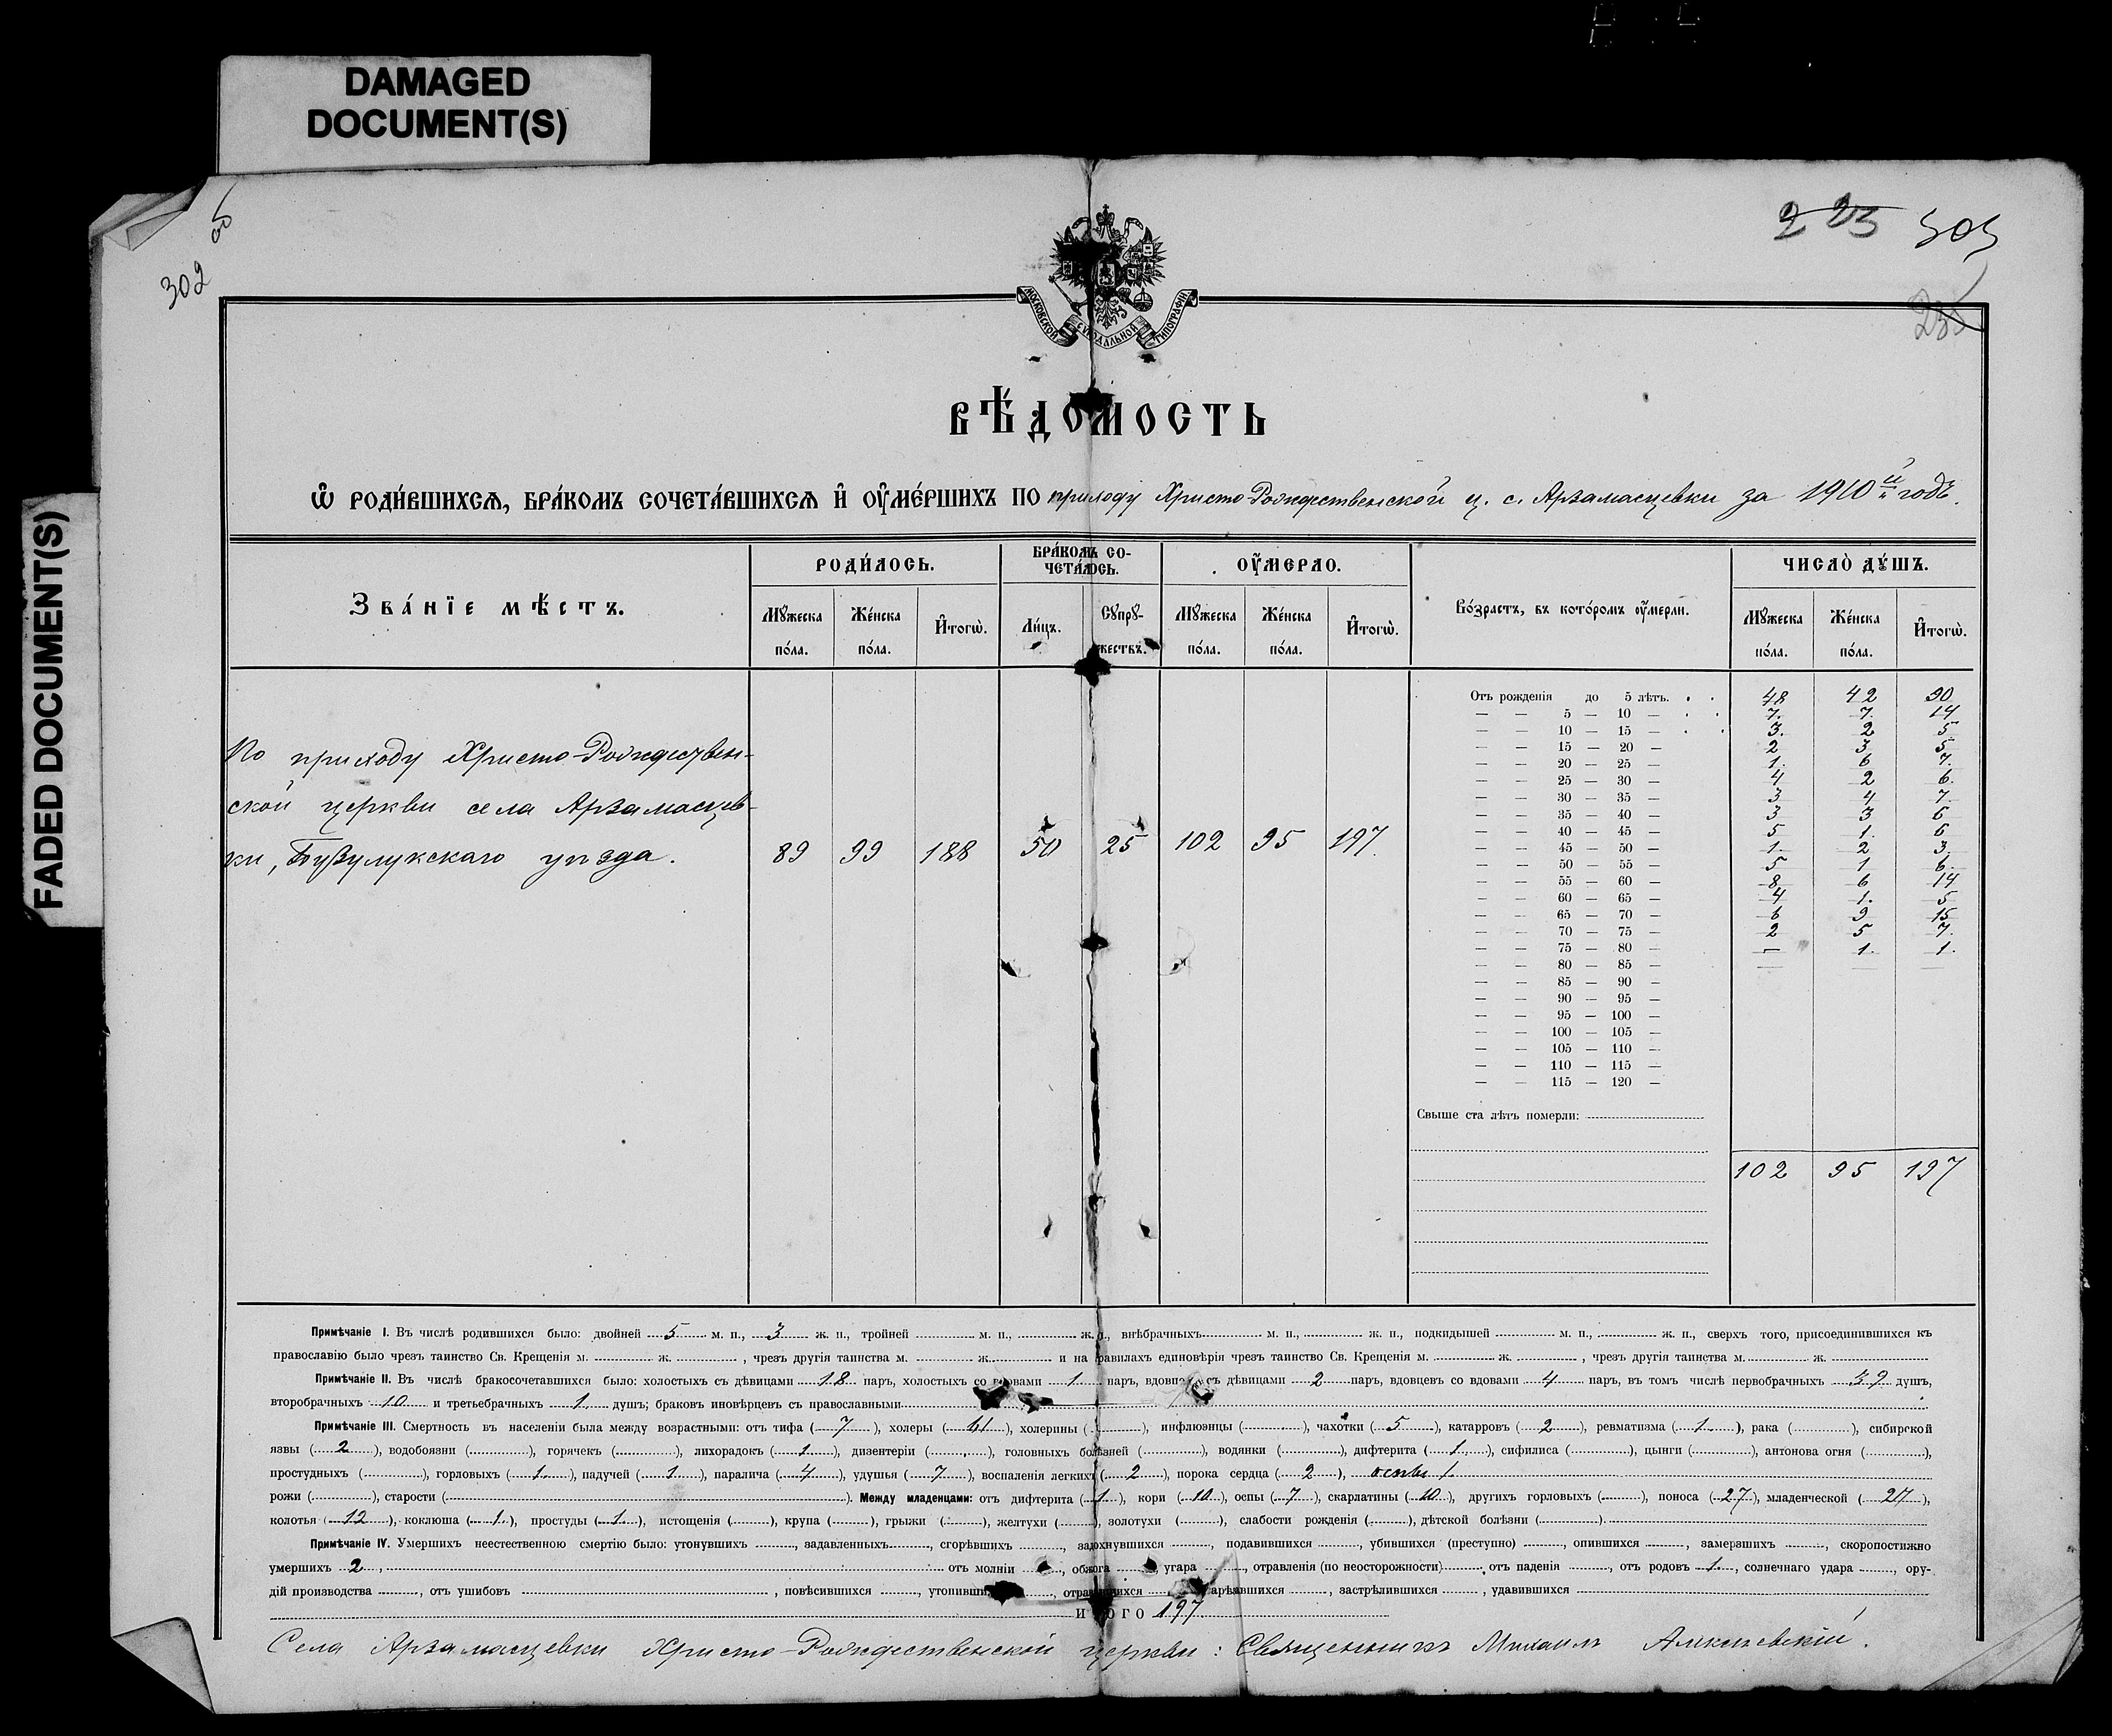 DAMAGED
DOCUMENT(S)
FADED DOCUMENT(S)
302
об
223 303
235
МОСКОВСКОЙ СѴНОДАЛЬНОЙ ТИПОГРАФІИ
ВѢ́ДОМОСТЬ
Ѡ҆ РОДИ́ВШИХСѦ, БРА́КОМЪ СОЧЕТА́ВШИХСѦ И҆ ОУ҆МЕ́РШИХЪ ПО приходу Христо-Рождественской ц. с. Арзамасцевки за 1910й годъ.
Зва́нїе мѣ́стъ. РОДИ́ЛОСЬ. БРА́КОМЪ СОЧЕТА́ЛОСЬ. ОУ҆́МЕРЛО. Во́зрастъ, въ кото́ромъ оу҆́мерли. ЧИСЛО̀ ДꙊ́ШЪ.
Мꙋ́жеска по́ла. Же́нска по́ла. И҆тогѡ̀. Ли́цъ. Сꙋпрꙋ́жествъ. Мꙋ́жеска по́ла. Же́нска по́ла. И҆тогѡ̀. Мꙋ́жеска по́ла. Же́нска по́ла. И҆тогѡ̀.
По приходу Христо-Рождествен-
ской церкви села Арзамасцев-
ки, Бузулукскаго уѣзда. 89 99 188 50 25 102 95 197.
Отъ рожденія до 5 лѣтъ. . . 48 42 90
— — 5 — 10 — . . 7. 7. 14
— — 10 — 15 — . . 3. 2 5
— — 15 — 20 — 2 3 5
— — 20 — 25 — 1. 6 7.
— — 25 — 30 — 4 2 6.
— — 30 — 35 — 3 4 7.
— — 35 — 40 — 3 3 6
— — 40 — 45 — 5 1. 6
— — 45 — 50 — 1. 2 3.
— — 50 — 55 — 5 1 6.
— — 55 — 60 — 8 6 14
— — 60 — 65 — 4 1. 5
— — 65 — 70 — 6 9 15
— — 70 — 75 — 2 5 7.
— — 75 — 80 — — 1. 1.
— — 80 — 85 —
— — 85 — 90 —
— — 90 — 95 —
— — 95 — 100 —
— — 100 — 105 —
— — 105 — 110 —
— — 110 — 115 —
— — 115 — 120 —
Свыше ста лѣтъ померли:
102 95 197
Примѣчаніе I. Въ числѣ родившихся было: двойней 5 м. п., 3 ж. п., тройней м. п., ж. п., внѣбрачныхъ м. п., ж. п., подкидышей м. п., ж. п., сверхъ того, присоединившихся къ
православію было чрезъ таинство Св. Крещенія м. ж. , чрезъ другія таинства м. ж. и на правилахъ единовѣрія чрезъ таинство Св. Крещенія м. ж. , чрезъ другія таинства м. ж.
Примѣчаніе II. Въ числѣ бракосочетавшихся было: холостыхъ съ дѣвицами 18 паръ, холостыхъ со вдовами 1 паръ, вдовцевъ съ дѣвицами 2 паръ, вдовцевъ со вдовами 4 паръ, въ томъ числѣ первобрачныхъ 39 душъ,
второбрачныхъ 10 и третьебрачныхъ 1 душъ; браковъ иновѣрцевъ съ православными
Примѣчаніе III. Смертность въ населеніи была между возрастными: отъ тифа (7), холеры (41), холерины ( ), инфлюэнцы ( ), чахотки (5), катарровъ (2), ревматизма (1), рака ( ), сибирской
язвы (2), водобоязни ( ), горячекъ ( ), лихорадокъ (1), дизентеріи ( ), головныхъ болѣзней ( ), водянки ( ), дифтерита (1), сифилиса ( ), цынги ( ), антонова огня ( ),
простудныхъ ( ), горловыхъ (1), падучей (1), паралича (4), удушья (7), воспаленія легкихъ (2), порока сердца (2), оспы 1.
рожи ( ), старости ( ). Между младенцами: отъ дифтерита (1), кори (10), оспы (7), скарлатины (10), другихъ горловыхъ ( ), поноса (27), младенческой (27),
колотья (12), коклюша (1), простуды (1), истощенія ( ), крупа ( ), грыжи ( ), желтухи ( ), золотухи ( ), слабости рожденія ( ), дѣтской болѣзни ( )
Примѣчаніе IV. Умершихъ неестественною смертію было: утонувшихъ , задавленныхъ , сгорѣвшихъ , задохнувшихся , подавившихся , убившихся (преступно) , опившихся , замерзшихъ , скоропостижно
умершихъ 2, отъ молніи , обжога угара , отравленія (по неосторожности) , отъ паденія , отъ родовъ 1, солнечнаго удара , ору-
дій производства , отъ ушибовъ , повѣсившихся , утопившихся , отравившихся зарѣзавшихся , застрѣлившихся , удавившихся
ИТОГО 197
Села Арзамасцевки Христо-Рождественской церкви: Священникъ Михаилъ Алексѣевскій.